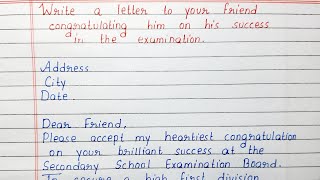 Write a letter to your friend
congratulating him on his success
in the examination.
Address
City
Date.
Dear Friend,
Please accept my heartiest congratulation
on your brilliant success at the
Secondary School Examination Board.
To secure a high first division